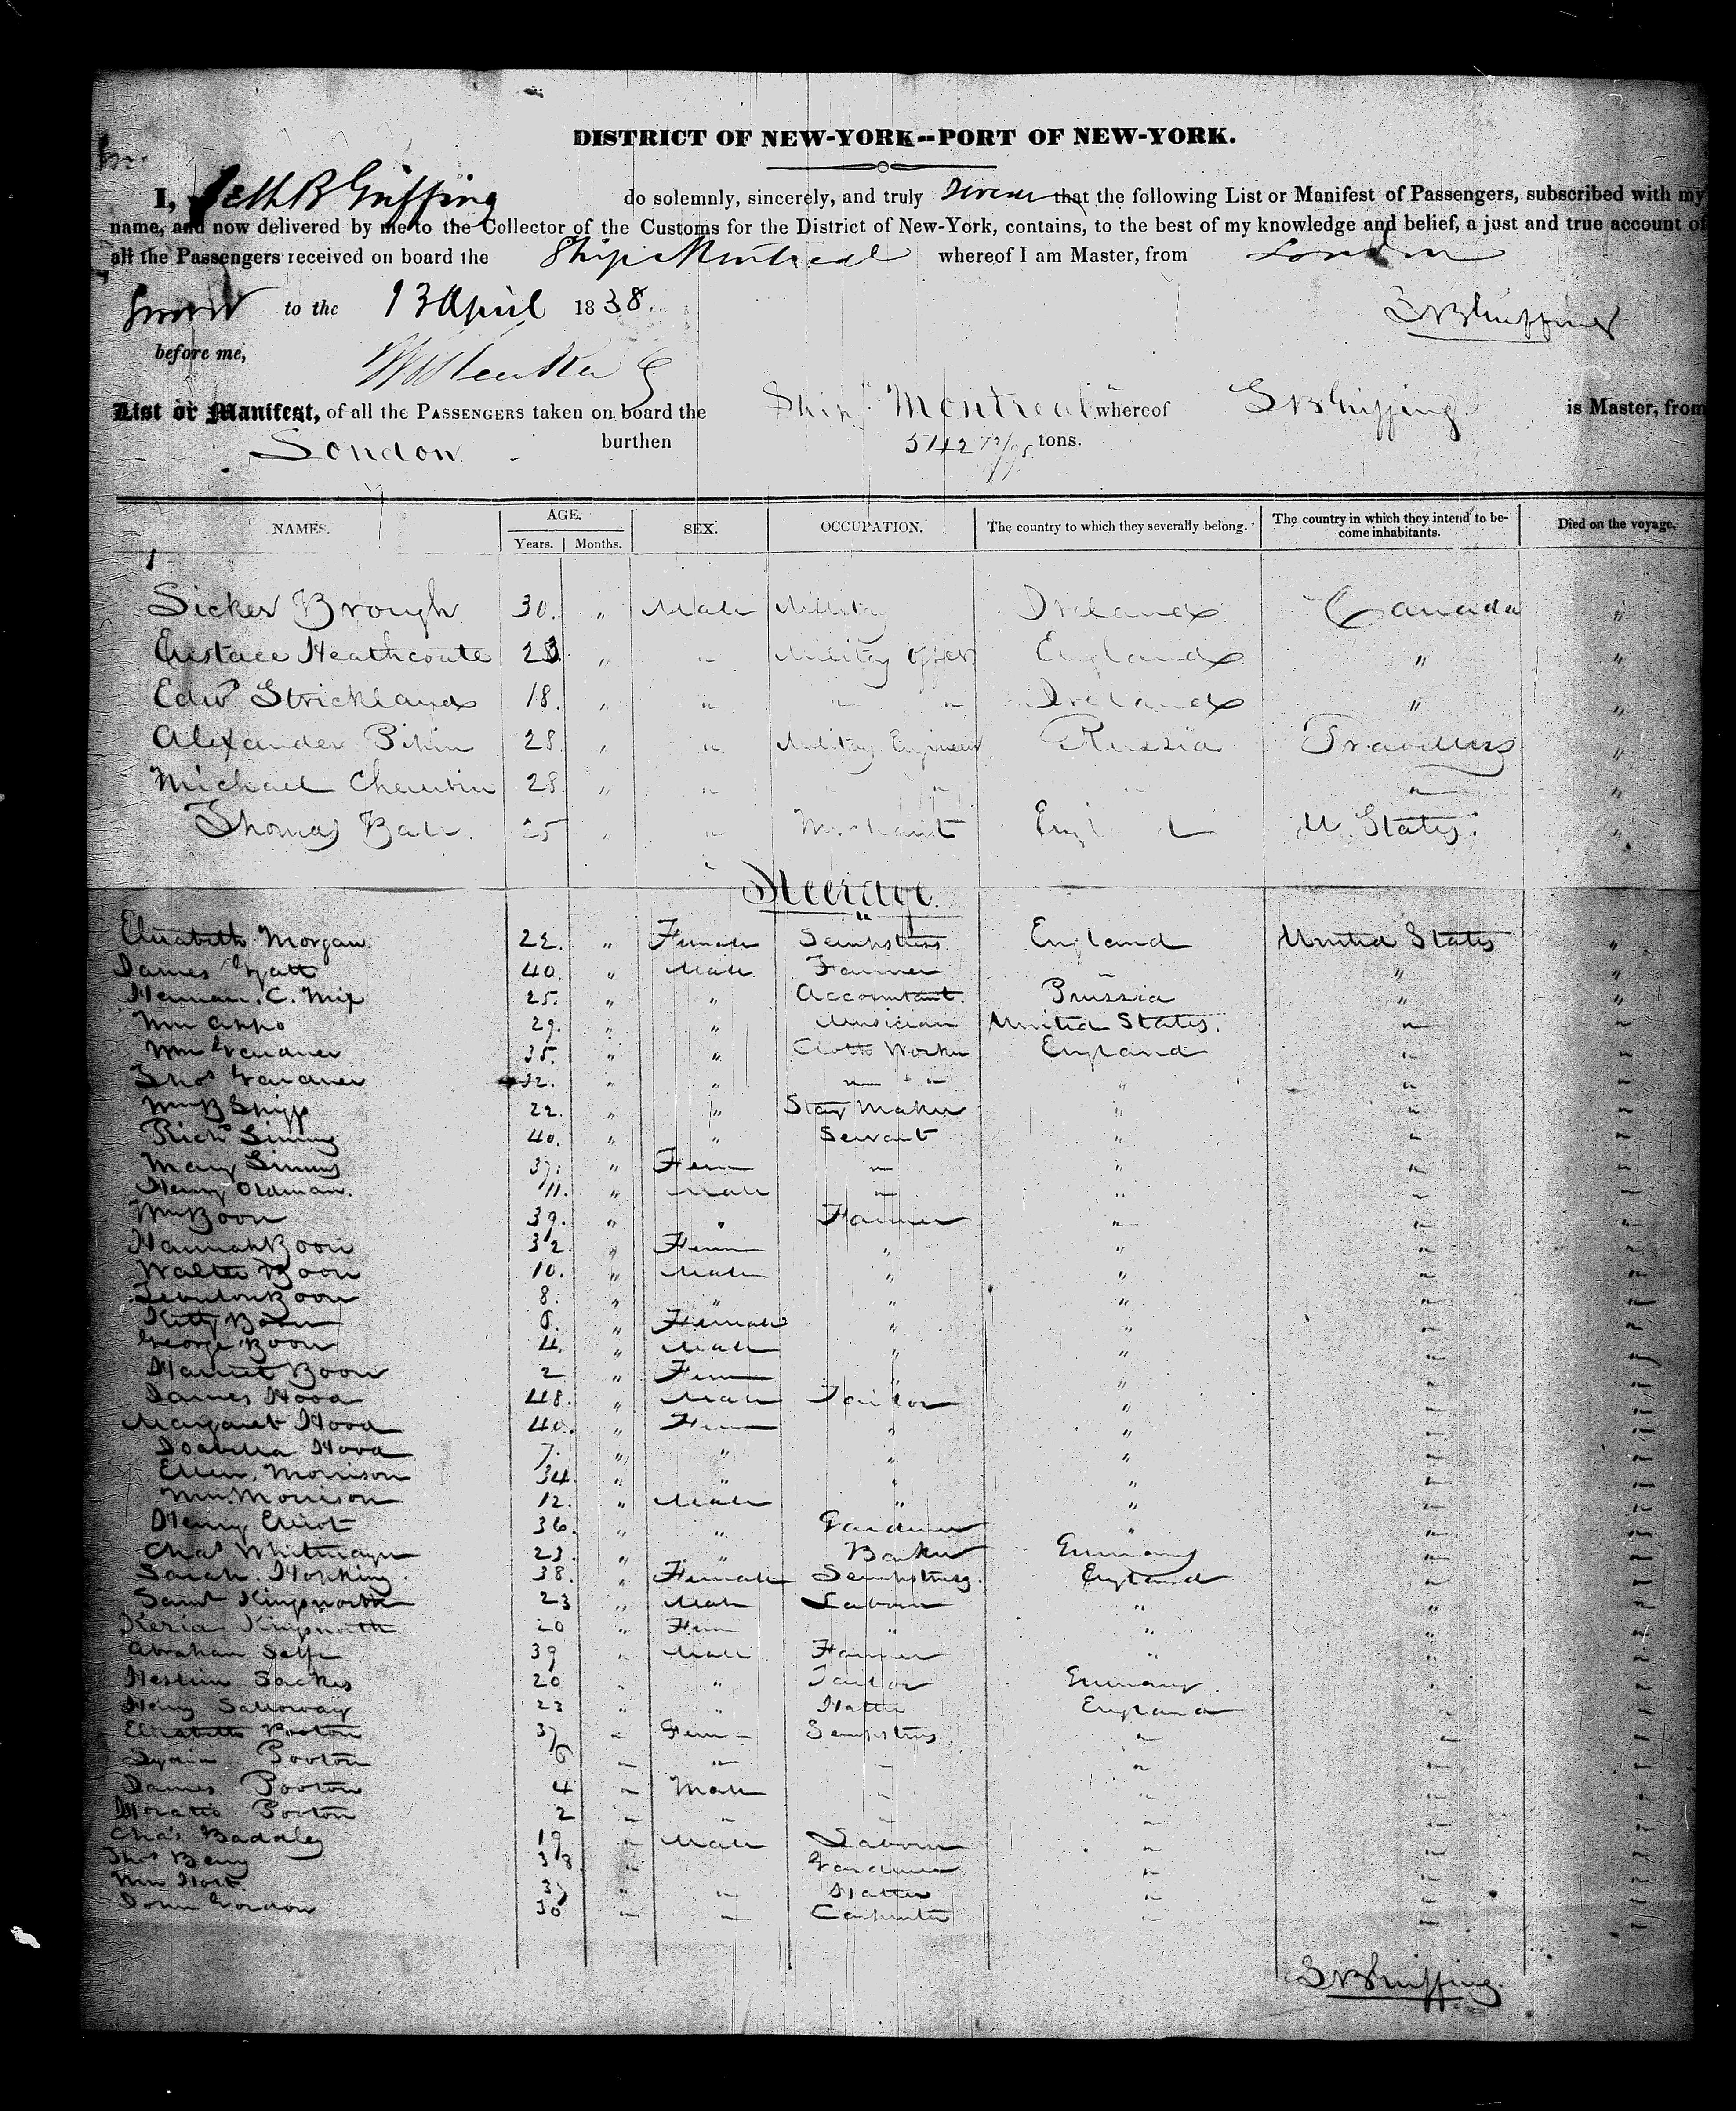 DISTRICT OF NEW-YORK--PORT OF NEW-YORK.
I, Seth B Griffing do solemnly, sincerely, and truly swear that the following List or Manifest of Passengers, subscribed with my
name, and now delivered by me to the Collector of the Customs for the District of New-York, contains, to the best of my knowledge and belief, a just and true account of
all the Passengers received on board the Ship Montreal whereof I am Master, from London
Sworn to the 13 April 1838. S B Griffing
before me,
List or Manifest, of all the PASSENGERS taken on board the Ship Montreal whereof S B Griffing is Master, from
London burthen 542 tons.
NAMES. AGE. SEX. OCCUPATION. The country to which they severally belong. The country in which they intend to be- Died on the voyage.
Years. Months. come inhabitants.
Brough 30. " Male Military Ireland Canada "
Eustace Heathcoate 23 " " Military Offcr England " "
Edwd Strickland 18. " " " " Ireland " "
Alexander 28. " " Military Engineer Russia Travellers "
Michael 28. " " " " " " "
Thomas 25 " " Merchant England U. States. "
Steerage.
Elizabeth Morgan. 22. " Female Sempstress. England United States "
James 40. " Male Farmer " "
Herman. C. Mix 25. " " Accountant. Prussia " "
Wm Appo 29. " " Musician United States. " "
Wm Gardner 35. " " Cloth Worker England " "
Thos Gardner 32. " " " " " " "
Wm B Shipp 22. " " Stay Maker " " "
Richd Simms 40. " " Servant " " "
Mary Simms 37. " Fem " " " "
Henry Oldman. 11. " Male " " " "
Wm Boon 39. " " Farmer " " "
Hannah Boon 32. " Fem " " " "
Walter Boon 10. " Male " " " "
Zebulon Boon 8. " " " " " "
Kitty Boon 6. " Female " " " "
George Boon 4. " Male " " " "
Harriet Boon 2 " Fem " " " "
James Hood 48. " Male Tailor " " "
Margaret Hood 40. " Fem " " " "
Isabella Hood 7. " " " " " "
Ellen Morrison 34. " " " " " "
Wm Morrison 12. " Male " " " "
Henry Elliot 36. " " Gardner " " "
Chas Whitmayer 23. " " Baker Germany " "
Sarah Hopking 38. " Female Sempstress. England " "
Saml Kingsnorth 23 " Male Labour " " "
Keria Kingsnorth 20 " Fem " " " "
Abraham Selfe 39 " Male Farmer " " "
Sackes 20 " " Tailor Germany " "
Henry Salloway 23 " " Hatter England " "
Elizabeth Pooton 37 " Fem Sempstress. " " "
Pooton 6 " " " " " "
James Pooton 4 " Male " " " "
Horatio Pooton 2 " " " " " "
Chas Baddley 19 " Male Labour " " "
Thos Berry 38 " Gardner " " "
Wm Holt. " " Hatter " " "
John Gordon 30 " " Carpenter " " "
S B Griffing.